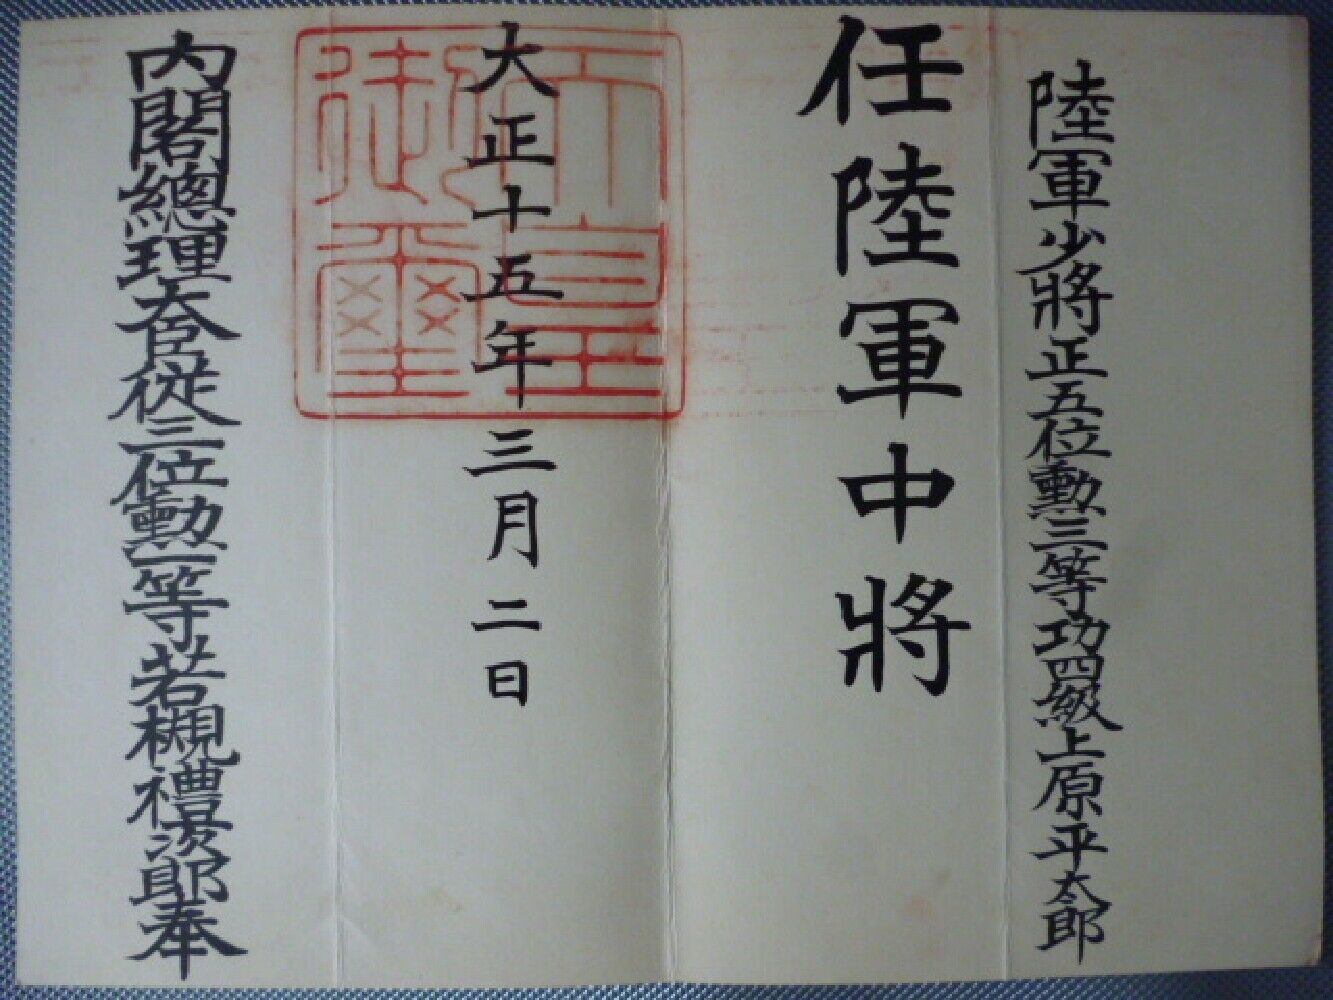 陸軍少將正五位勳三等功四級上原平太郎
任陸軍中將
大正十五年三月二日
天皇御璽
内閣總理大臣從三位勳一等若槻禮次郎奉